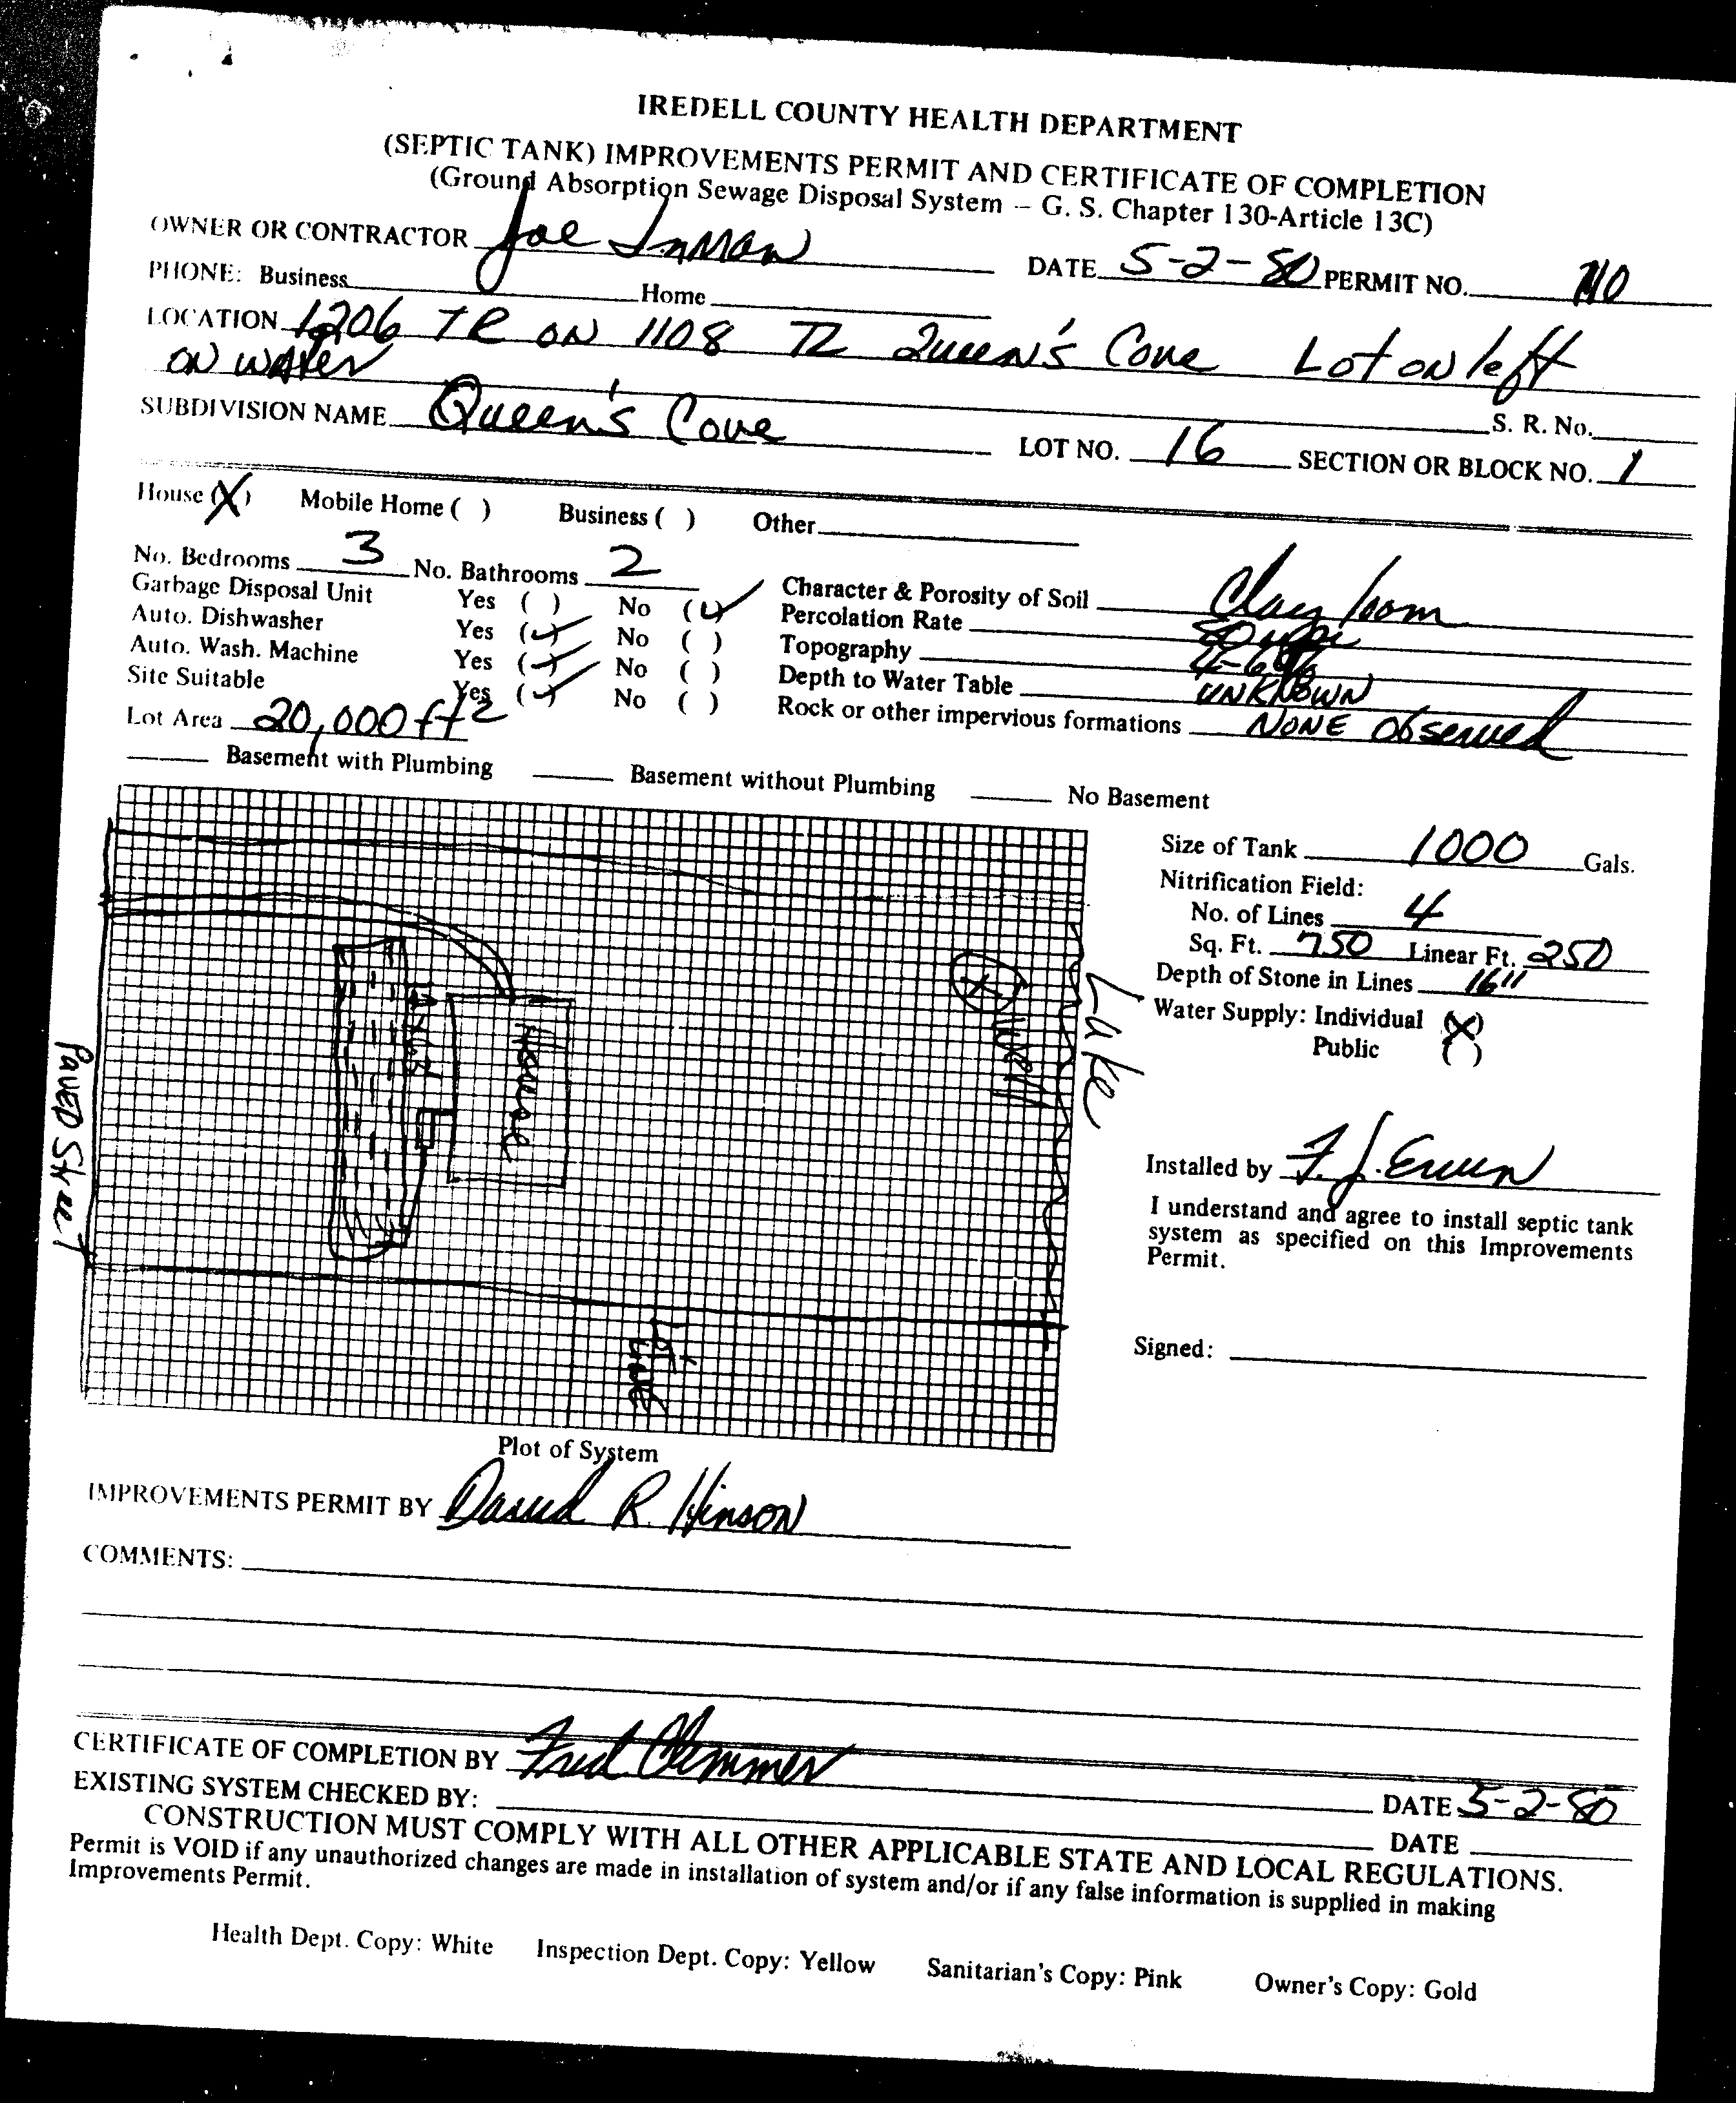 IREDELL COUNTY HEALTH DEPARTMENT
(SEPTIC TANK) IMPROVEMENTS PERMIT AND CERTIFICATE OF COMPLETION
(Ground Absorption Sewage Disposal System -- G. S. Chapter 130-Article 13C)
OWNER OR CONTRACTOR Joe Inman DATE 5-2-80 PERMIT NO.
PHONE: Business Home
LOCATION 1206 TR ON 1108 TL Queen's Cove Lot on left
ON WATER S. R. No.
SUBDIVISION NAME Queen's Cove LOT NO. 16 SECTION OR BLOCK NO. 1
House (X) Mobile Home ( ) Business ( ) Other
No. Bedrooms 3 No. Bathrooms 2
Garbage Disposal Unit Yes ( ) No (✓) Character & Porosity of Soil Clay loam
Auto. Dishwasher Yes (✓) No ( ) Percolation Rate
Auto. Wash. Machine Yes (✓) No ( ) Topography
Site Suitable Yes (✓) No ( ) Depth to Water Table UNKNOWN
Lot Area 20,000 ft2 Rock or other impervious formations NONE Observed
Basement with Plumbing Basement without Plumbing No Basement
Size of Tank 1000 Gals.
Nitrification Field:
No. of Lines 4
Sq. Ft. 750 Linear Ft. 250
Depth of Stone in Lines 16"
Water Supply: Individual (X)
Public ( )
House
Well
Lake
PAVED Street
Lot Line
Installed by F. J. Erwin
I understand and agree to install septic tank
system as specified on this Improvements
Permit.
Signed:
Plot of System
IMPROVEMENTS PERMIT BY David R. Hinson
COMMENTS:
CERTIFICATE OF COMPLETION BY Fred Clemmer DATE 5-2-80
EXISTING SYSTEM CHECKED BY: DATE
CONSTRUCTION MUST COMPLY WITH ALL OTHER APPLICABLE STATE AND LOCAL REGULATIONS.
Permit is VOID if any unauthorized changes are made in installation of system and/or if any false information is supplied in making
Improvements Permit.
Health Dept. Copy: White Inspection Dept. Copy: Yellow Sanitarian's Copy: Pink Owner's Copy: Gold